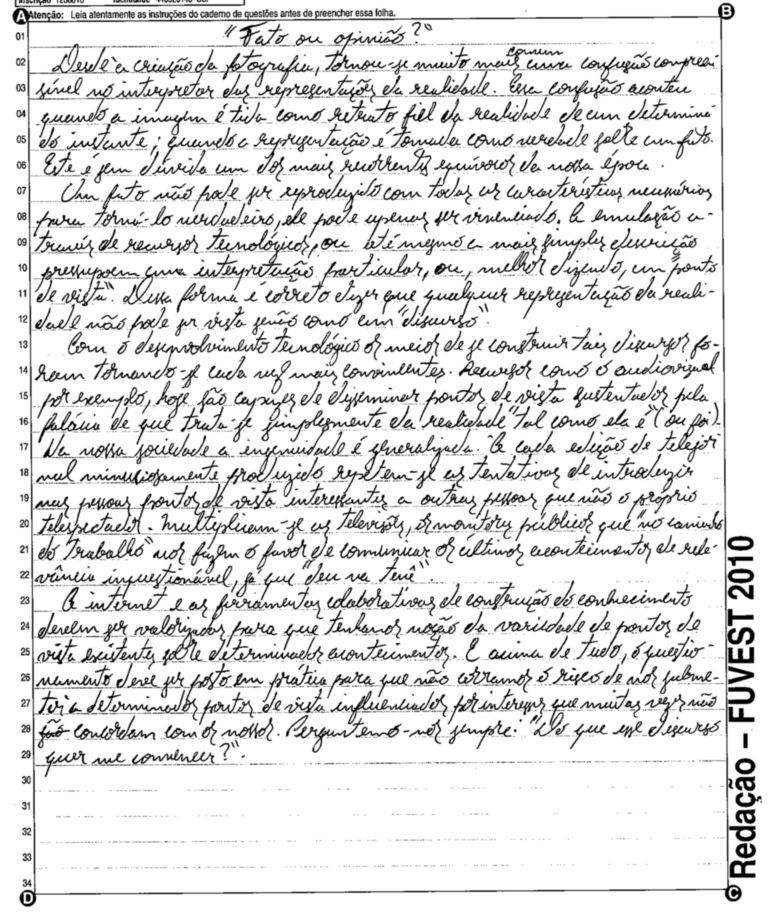 Inscrição 1256010
Atenção: Leia atentamente as instruções do caderno de questões antes de preencher essa folha.
A
B
01 "Fato ou opinião?"
02 Desde a criação da fotografia, tornou-se muito mais comum uma confusão compreen
03 sível no interpretar das representações da realidade. Essa confusão aconteu
04 quando a imagem é tida como retrato fiel da realidade de um determina
05 do instante; quando a representação é tomada como verdade sobre um fato.
06 Este é sem dúvida um dos mais recorrentes equívocos da nossa época.
07 Um fato não pode ser reproduzido com todas as características necessárias
08 para torná-lo verdadeiro, ele pode apenas ser vivenciado. A emulação a-
09 través de recursos tecnológicos, ou até mesmo a mais simples descrição
10 pressupoem uma interpretação particular, ou, melhor dizendo, um "ponto
11 de vista". Dessa forma é correto dizer que qualquer representação da reali-
12 dade não pode ser vista senão como um "discurso".
13 Com o desenvolvimento tecnológico os meios de se construir tais discursos fo-
14 ram tornando-se cada vez mais convincentes. Recursos como o audiovisual
15 por exemplo, hoje são capazes de disseminar pontos de vista sustentados pela
16 falácia de que trata-se simplesmente da realidade "tal como ela é" (ou foi).
17 Na nossa sociedade a ingenuidade é generalizada. A cada edição de telejor
18 nal minuciosamente produzido repetem-se as tentativas de introduzir
19 nas pessoas pontos de vista interessantes a outras pessoas que não o próprio
20 telespectador. Multiplicam-se as televisões, os monitores públicos que "no caminho
21 do trabalho" nos fazem o favor de comunicar os últimos acontecimentos de rele-
22 vância inquestionável, já que "deu na tevê".
23 A internet e as ferramentas colaborativas de construção do conhecimento
24 devem ser valorizadas para que tenhamos noção da variedade de pontos de
25 vista existentes sobre determinados acontecimentos. E acima de tudo, o questio-
26 namento deve ser posto em prática para que não corramos o risco de nos subme-
27 ter a determinados pontos de vista influenciados por interesses que muitas vezes não
28 são concordam com os nossos. Perguntemo-nos sempre: "Do que esse discurso
29 quer me convencer?".
30
31
32
33
34
D
C
Redação – FUVEST 2010